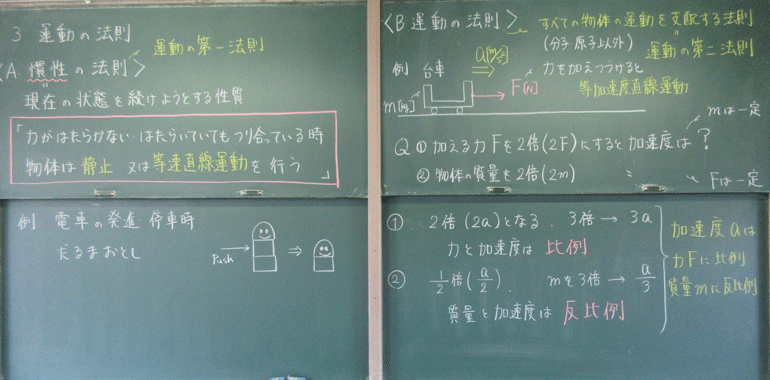 3 運動の法則
運動の第一法則
〈A 慣性の法則〉
現在の状態を続けようとする性質
「力がはたらかない・はたらいていてもつり合っている時
物体は静止 又は等速直線運動を行う」
例 電車の発進 停車時
だるまおとし
Push → ⇒
〈B 運動の法則〉 すべての物体の運動を支配する法則
(分子 原子以外) 運動の第二法則
例 台車
⇒
力を加えつづけると
等加速度直線運動
m[kg] → F[N]
mは一定
Q ① 加える力Fを2倍(2F)にすると加速度は?
② 物体の質量を2倍(2m) 〃
Fは一定
① 2倍(2a)となる. 3倍→3a
力と加速度は 比例
② 1/2倍(a/2). mを3倍→a/3
質量と加速度は 反比例
加速度aは
力Fに比例
質量mに反比例